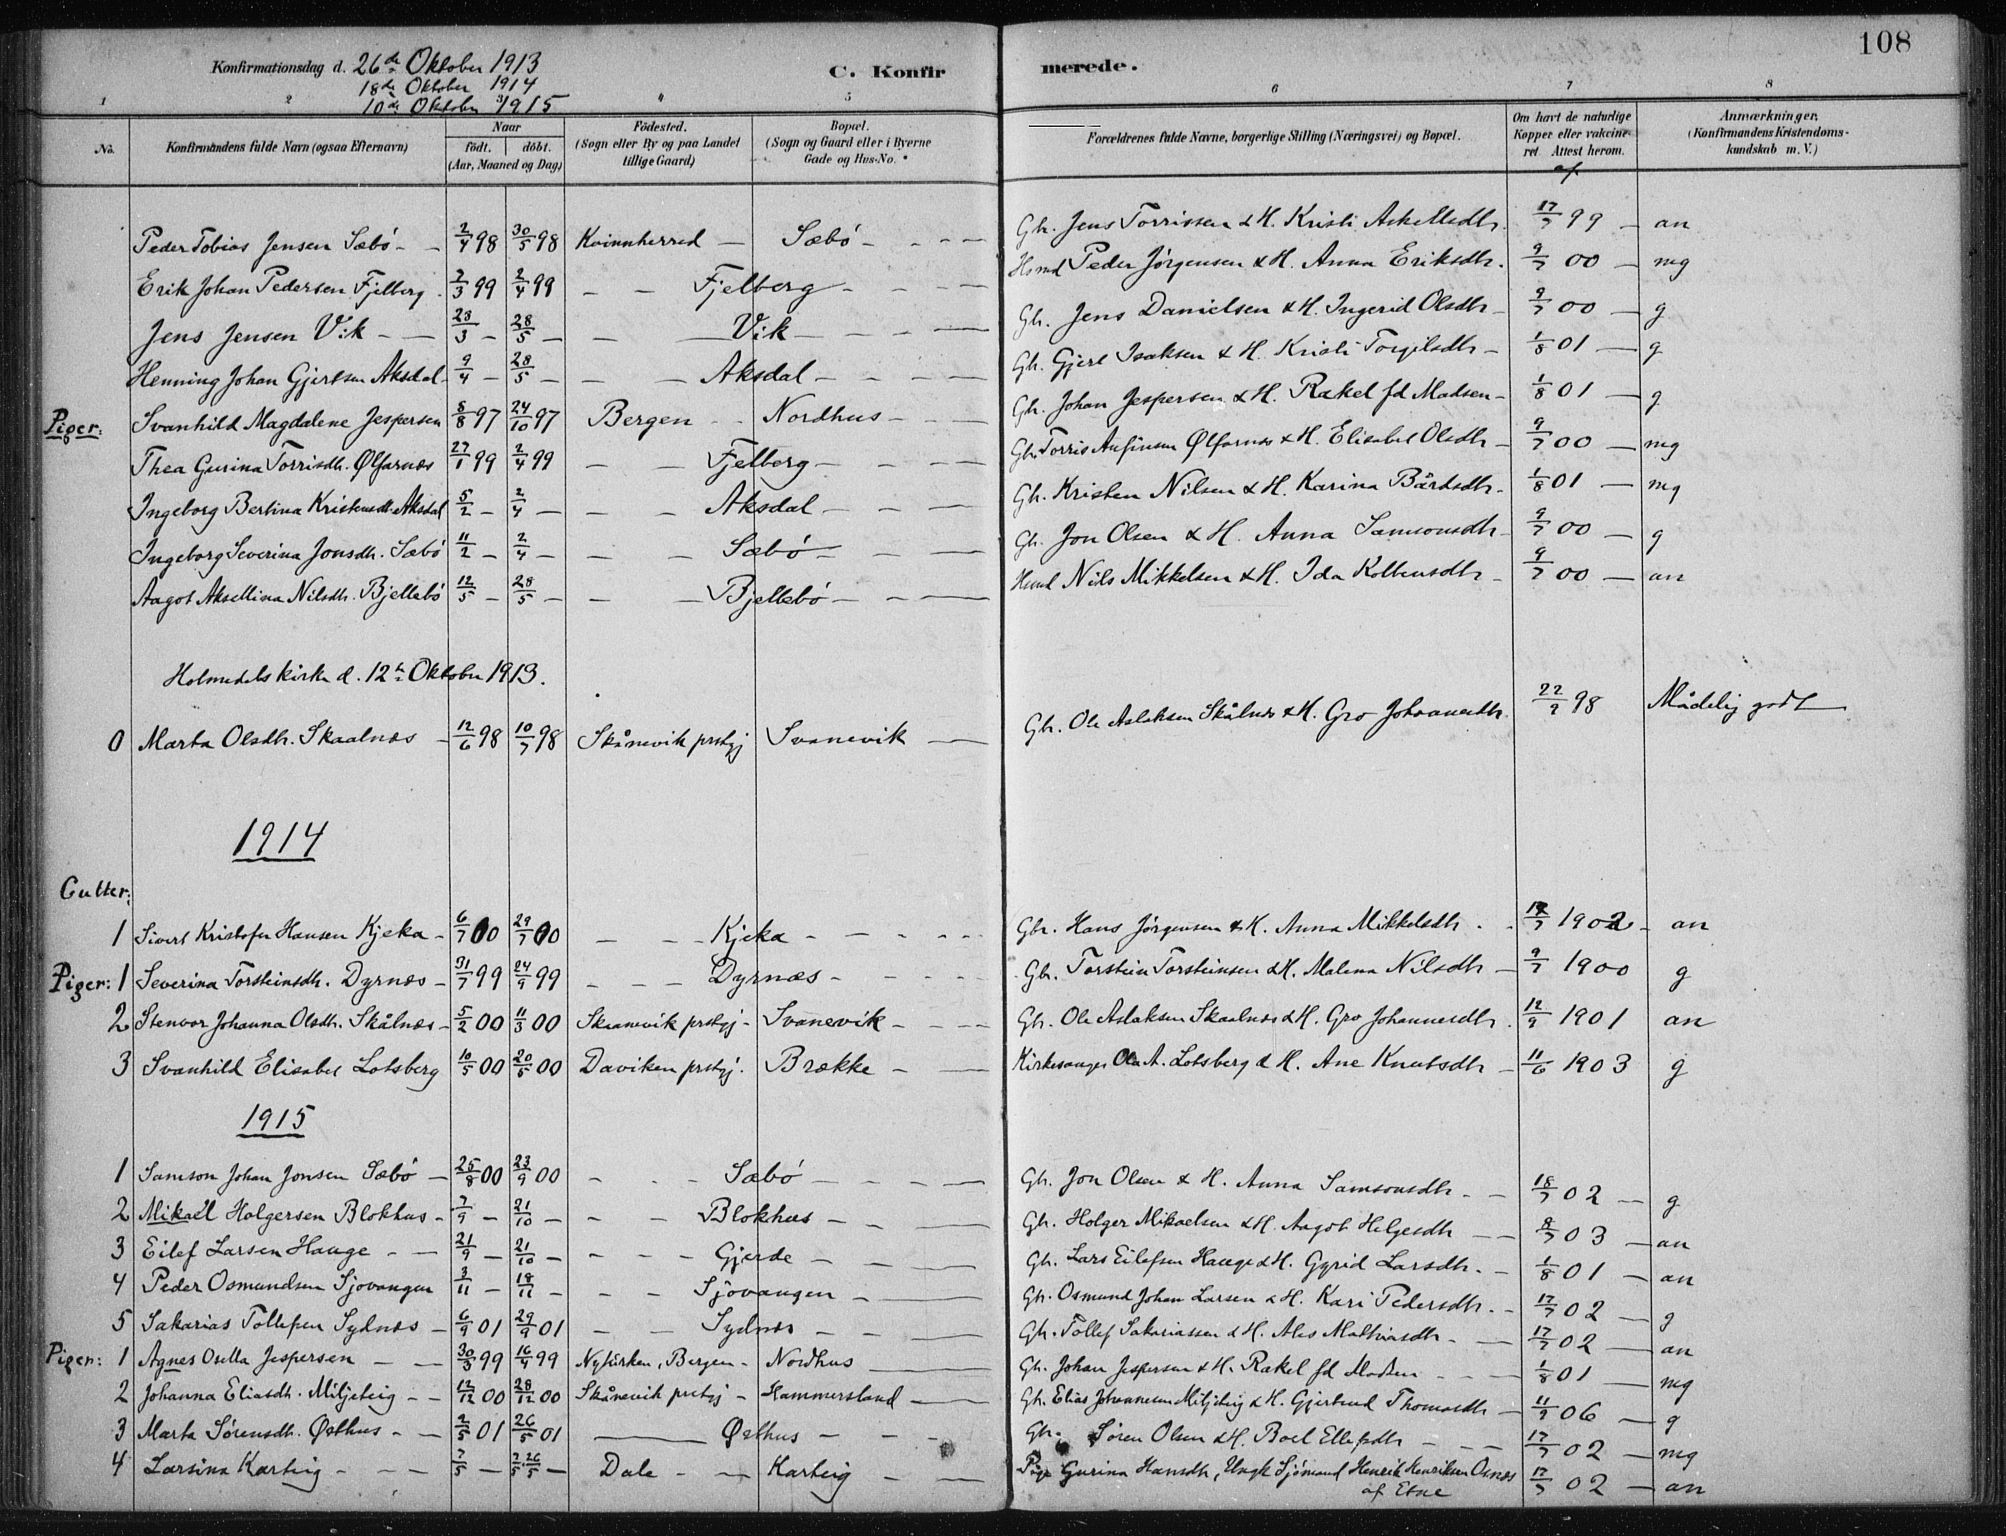 108
Konfirmationsdag d. 26de Oktober 1913
18de Oktober 1914
10de Oktober 1915
C. Konfirmerede.
1 2 3 4 5 6 7 8
No. Konfirmandens fulde Navn (ogsaa Efternavn) Naar födt. döbt. (Aar, Maaned og Dag) Födested. (Sogn eller By og paa Landet tillige Gaard) Bopæl. (Sogn og Gaard eller i Byerne Gade og Hus-No. Forældrenes fulde Navne, borgerlige Stilling (Næringsvei) og Bopæl. Om havt de naturlige Kopper eller vakcineret. Attest herom. Anmærkninger, (Konfirmandens Kristendomskundskab m. V.)
af
Peder Tobias Jensen Sæbö - 2/4 98 30/5 98 Kvinnherred - Sæbö - - - Gbr. Jens Torrissen & H. Kristi Askellsdtr. 17/7 99 - an
Erik Johan Pedersen Fjelberg. 2/3 99 2/4 99 - - Fjelberg - - - Hsmd Peder Jörgensen & H. Anna Eriksdtr. 9/7 00 - mg
Jens Jensen Vik - - 23/3 - 28/5 - - - Vik - - - Gbr. Jens Danielsen & H. Ingerid Olsdtr - 9/7 00 - g
Henning Johan Gjertsen Aksdal - 9/4 - 28/5 - - - Aksdal - - - Gbr. Gjert Isaksen & H. Kristi Torgilsdtr - 1/8 01 - g
Piger: Svanhild Magdalene Jespersen 5/8 97 24/10 97 Bergen - - Nordhus - - - Gbr. Johan Jespersen & H. Rakel fd Madsen - 1/8 01 - g
Thea Gurina Torrisdtr. Ølfarnæs 27/1 99 2/4 99 - - Fjelberg - - - Gbr. Torris Anfinsen Ølfarnæs & H. Elisabet Olsdtr - 9/7 00 - mg
Ingeborg Bertina Kristensdtr Aksdal 5/2 - 2/4 - - - Aksdal - - - Gbr. Kristen Nilsen & H. Karina Bårdsdtr - 1/8 01 - mg
Ingeborg Severina Jonsdtr. Sæbö 11/2 - 2/4 - - - Sæbö - - - Gbr. Jon Olsen & H. Anna Samsonsdtr - 9/7 00 - g
Aagot Aksellina Nilsdtr. Bjellebö 12/5 - 28/5 - - - Bjellebö - - - Hsmd Nils Mikkelsen & H. Ida Kolbensdtr - 9/7 00 - an
Holmedals kirke d. 12te Oktober 1913.
0 Marta Olsdtr. Skaalnæs - 12/6 98 10/7 98 Skånevik prstgj Svanevik - Gbr. Ole Aslaksen Skålnæs & H. Gro Johannesdtr. 22/9 98 Mådelig godt
1914
Gutter:
1 Sivert Kristofer Hansen Kjeka - 6/7 00 29/7 00 - - - Kjeka - - - - Gbr. Hans Jörgensen & H. Anna Mikkelsdtr. 17/7 1902 - an
Piger: 1 Severina Torsteinsdtr. Dyrnæs - 31/7 99 24/9 99 - - - Dyrnæs - - - - Gbr. Torstein Torsteinsen & H. Malena Nilsdtr - 9/7 1900 g
2 Stenvor Johanna Olsdtr. Skålnæs - 5/2 00 11/3 00 Skaanevik prstgj - Svanevik - - - Gbr. Ole Aslaksen Skaalnæs & H. Gro Johannesdtr. 12/9 1901 an
3 Svanhild Elisabet Lotsberg 10/5 00 20/5 00 Daviken prstgj. Brække - - Kirkesanger Ola A. Lotsberg & H. Ane Knutsdtr - 11/6 1903 g
1915
1 Samson Johan Jonsen Sæbö - 25/8 00 23/9 00 - - - Sæbö - - - - Gbr. Jon Olsen & H. Anna Samsonsdtr - - 18/7 02 - g
2 Mikael Holgersen Blokhus - 7/9 - 21/10 - - - Blokhus - - - Gbr. Holger Mikaelsen & H. Aagot Helgesdtr - - 8/7 03 - an
3 Eilef Larsen Hauge - - 21/9 - 21/10 - - - - Gjerde - - - Gbr. Lars Eilefsen Hauge & H. Gyrid Larsdtr. - 1/8 01 - an
4 Peder Osmundsen Sjövangen 3/11 - 18/11 - - - Sjövangen - - Gbr. Osmund Johan Larsen & H. Kari Pedersdtr. - 17/7 02 - g
5 Sakarias Tollefsen Sydnæs - 6/9 01 29/9 01 - - Sydnæs - - - Gbr. Tollef Sakariassen & H. Ales Mathiasdtr - - 17/7 02 - an
Piger: 1 Agnes Osella Jespersen - - 30/3 99 16/4 99 Nykirken, Bergen - Nordhus - Gbr. Johan Jespersen & H. Rakel fd Madsen - - - 1/8 01 - mg
2 Johanna Eliasdtr. Miljeteig - - 12/12 00 28/12 00 Skånevik prstgj - Hammersland - Gbr. Elias Johannesen Miljeteig & H. Gjertrud Thomasdtr - 11/9 06 - g
3 Marta Sörensdtr. Østhus - - 2/5 01 26/5 01 - Østhus - - - Gbr. Sören Olsen & H. Boel Ellefsdtr - - - 17/7 02 - mg
4 Larsina Karteig - - - 7/5 - 26/5 - Dale - - Karteig - - Pige Gurina Hansdtr, Ungk Sjömand Henrik Henriksen Osnes af Etne 17/7 02 - an